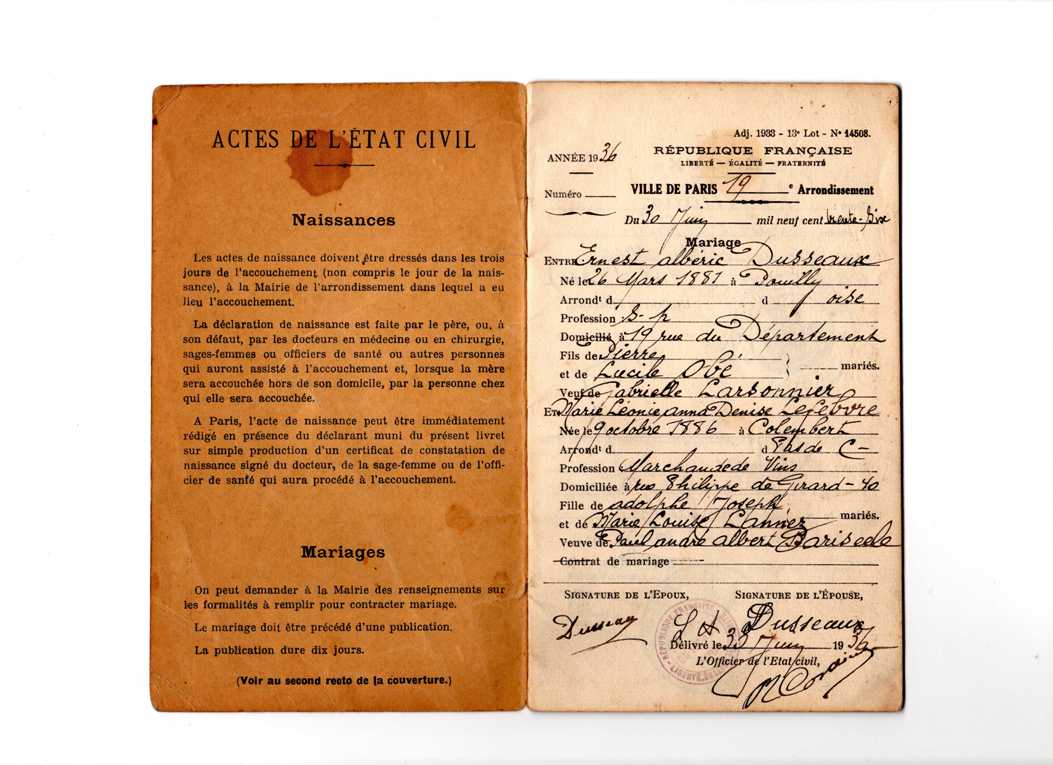 ACTES DE L'ÉTAT CIVIL
Naissances
Les actes de naissance doivent être dressés dans les trois
jours de l'accouchement (non compris le jour de la nais-
sance), à la Mairie de l'arrondissement dans lequel a eu
lieu l'accouchement.
La déclaration de naissance est faite par le père, ou, à
son défaut, par les docteurs en médecine ou en chirurgie,
sages-femmes ou officiers de santé ou autres personnes
qui auront assisté à l'accouchement et, lorsque la mère
sera accouchée hors de son domicile, par la personne chez
qui elle sera accouchée.
A Paris, l'acte de naissance peut être immédiatement
rédigé en présence du déclarant muni du présent livret
sur simple production d'un certificat de constatation de
naissance signé du docteur, de la sage-femme ou de l'offi-
cier de santé qui aura procédé à l'accouchement.
Mariages
On peut demander à la Mairie des renseignements sur
les formalités à remplir pour contracter mariage.
Le mariage doit être précédé d'une publication.
La publication dure dix jours.
(Voir au second recto de la couverture.)
Adj. 1933 - 13e Lot - No 14508.
ANNÉE 1936
RÉPUBLIQUE FRANÇAISE
LIBERTÉ — ÉGALITÉ — FRATERNITÉ
Numéro
VILLE DE PARIS 19e Arrondissement
Du 30 Juin mil neuf cent trente-six
Mariage
ENTRE Ernest albéric Dusseaux
Né le 26 Mars 1881 à Pouilly
Arrondt d d oise
Profession S-p
Domicilié à 19 rue du Département
Fils de Pierre
et de Lucile Obé mariés.
Veuf de Gabrielle Larsonnier
ET Marie Léonie anna Denise Lefebvre
Née le 9 octobre 1886 à Colembert
Arrondt d d Pas de C-
Profession Marchande de Vins
Domiciliée à rue Philippe de Girard - 40
Fille de adolphe Joseph
et de Marie Louise Lannez mariés.
Veuve de Paul andré albert
Contrat de mariage
SIGNATURE DE L'EPOUX, SIGNATURE DE L'ÉPOUSE,
Dusseaux
Dusseaux
Délivré le Juin 1936
L'Officier de l'Etat civil,